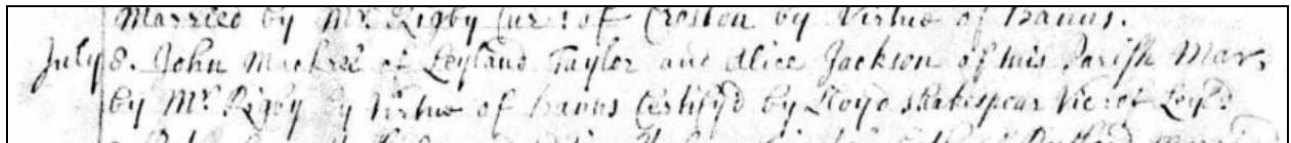 Married by Mr. Rigby Cur: of Croston by Virtue of Banns.
July 8. John Mackrel of Leyland Taylor and Alice Jackson of this Parish Mar,
by Mr. Rigby by Virtue of Banns Certify'd by Lloyd Vic: of Leyl'd